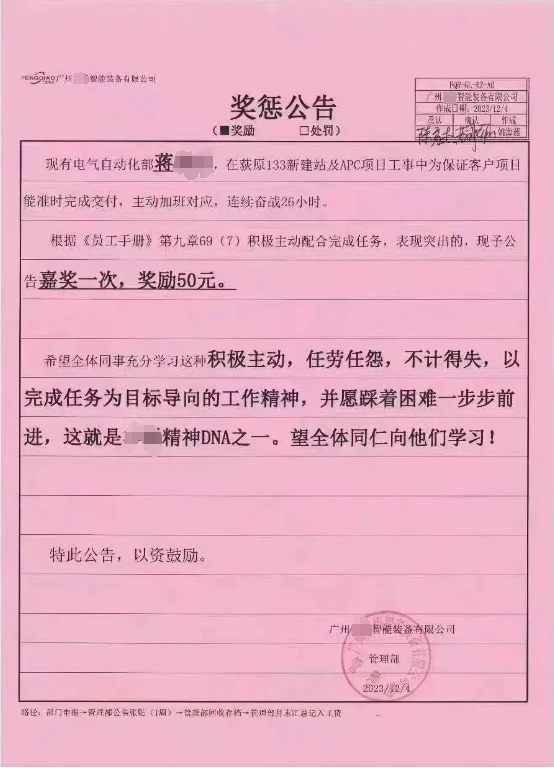 FENGQIAO 广州 智能装备有限公司
FQB-GL-42-A0
广州 智能装备有限公司
作成日期：2023/12/4
承认 确认 作成
奖惩公告
（■奖励 □处罚）
现有电气自动化部蒋 ，在荻原133新建站及APC项目工事中为保证客户项目
能准时完成交付，主动加班对应，连续奋战26小时。
根据《员工手册》第九章69（7）积极主动配合完成任务，表现突出的，现予公
告嘉奖一次，奖励50元。
希望全体同事充分学习这种积极主动，任劳任怨，不计得失，以
完成任务为目标导向的工作精神，并愿踩着困难一步步前
进，这就是 精神DNA之一。望全体同仁向他们学习！
特此公告，以资鼓励。
广州 智能装备有限公司
管理部
2023/12/4
路径：部门申报→管理部公告张贴（1周）→管理部回收存档→管理部月末汇总记入工资